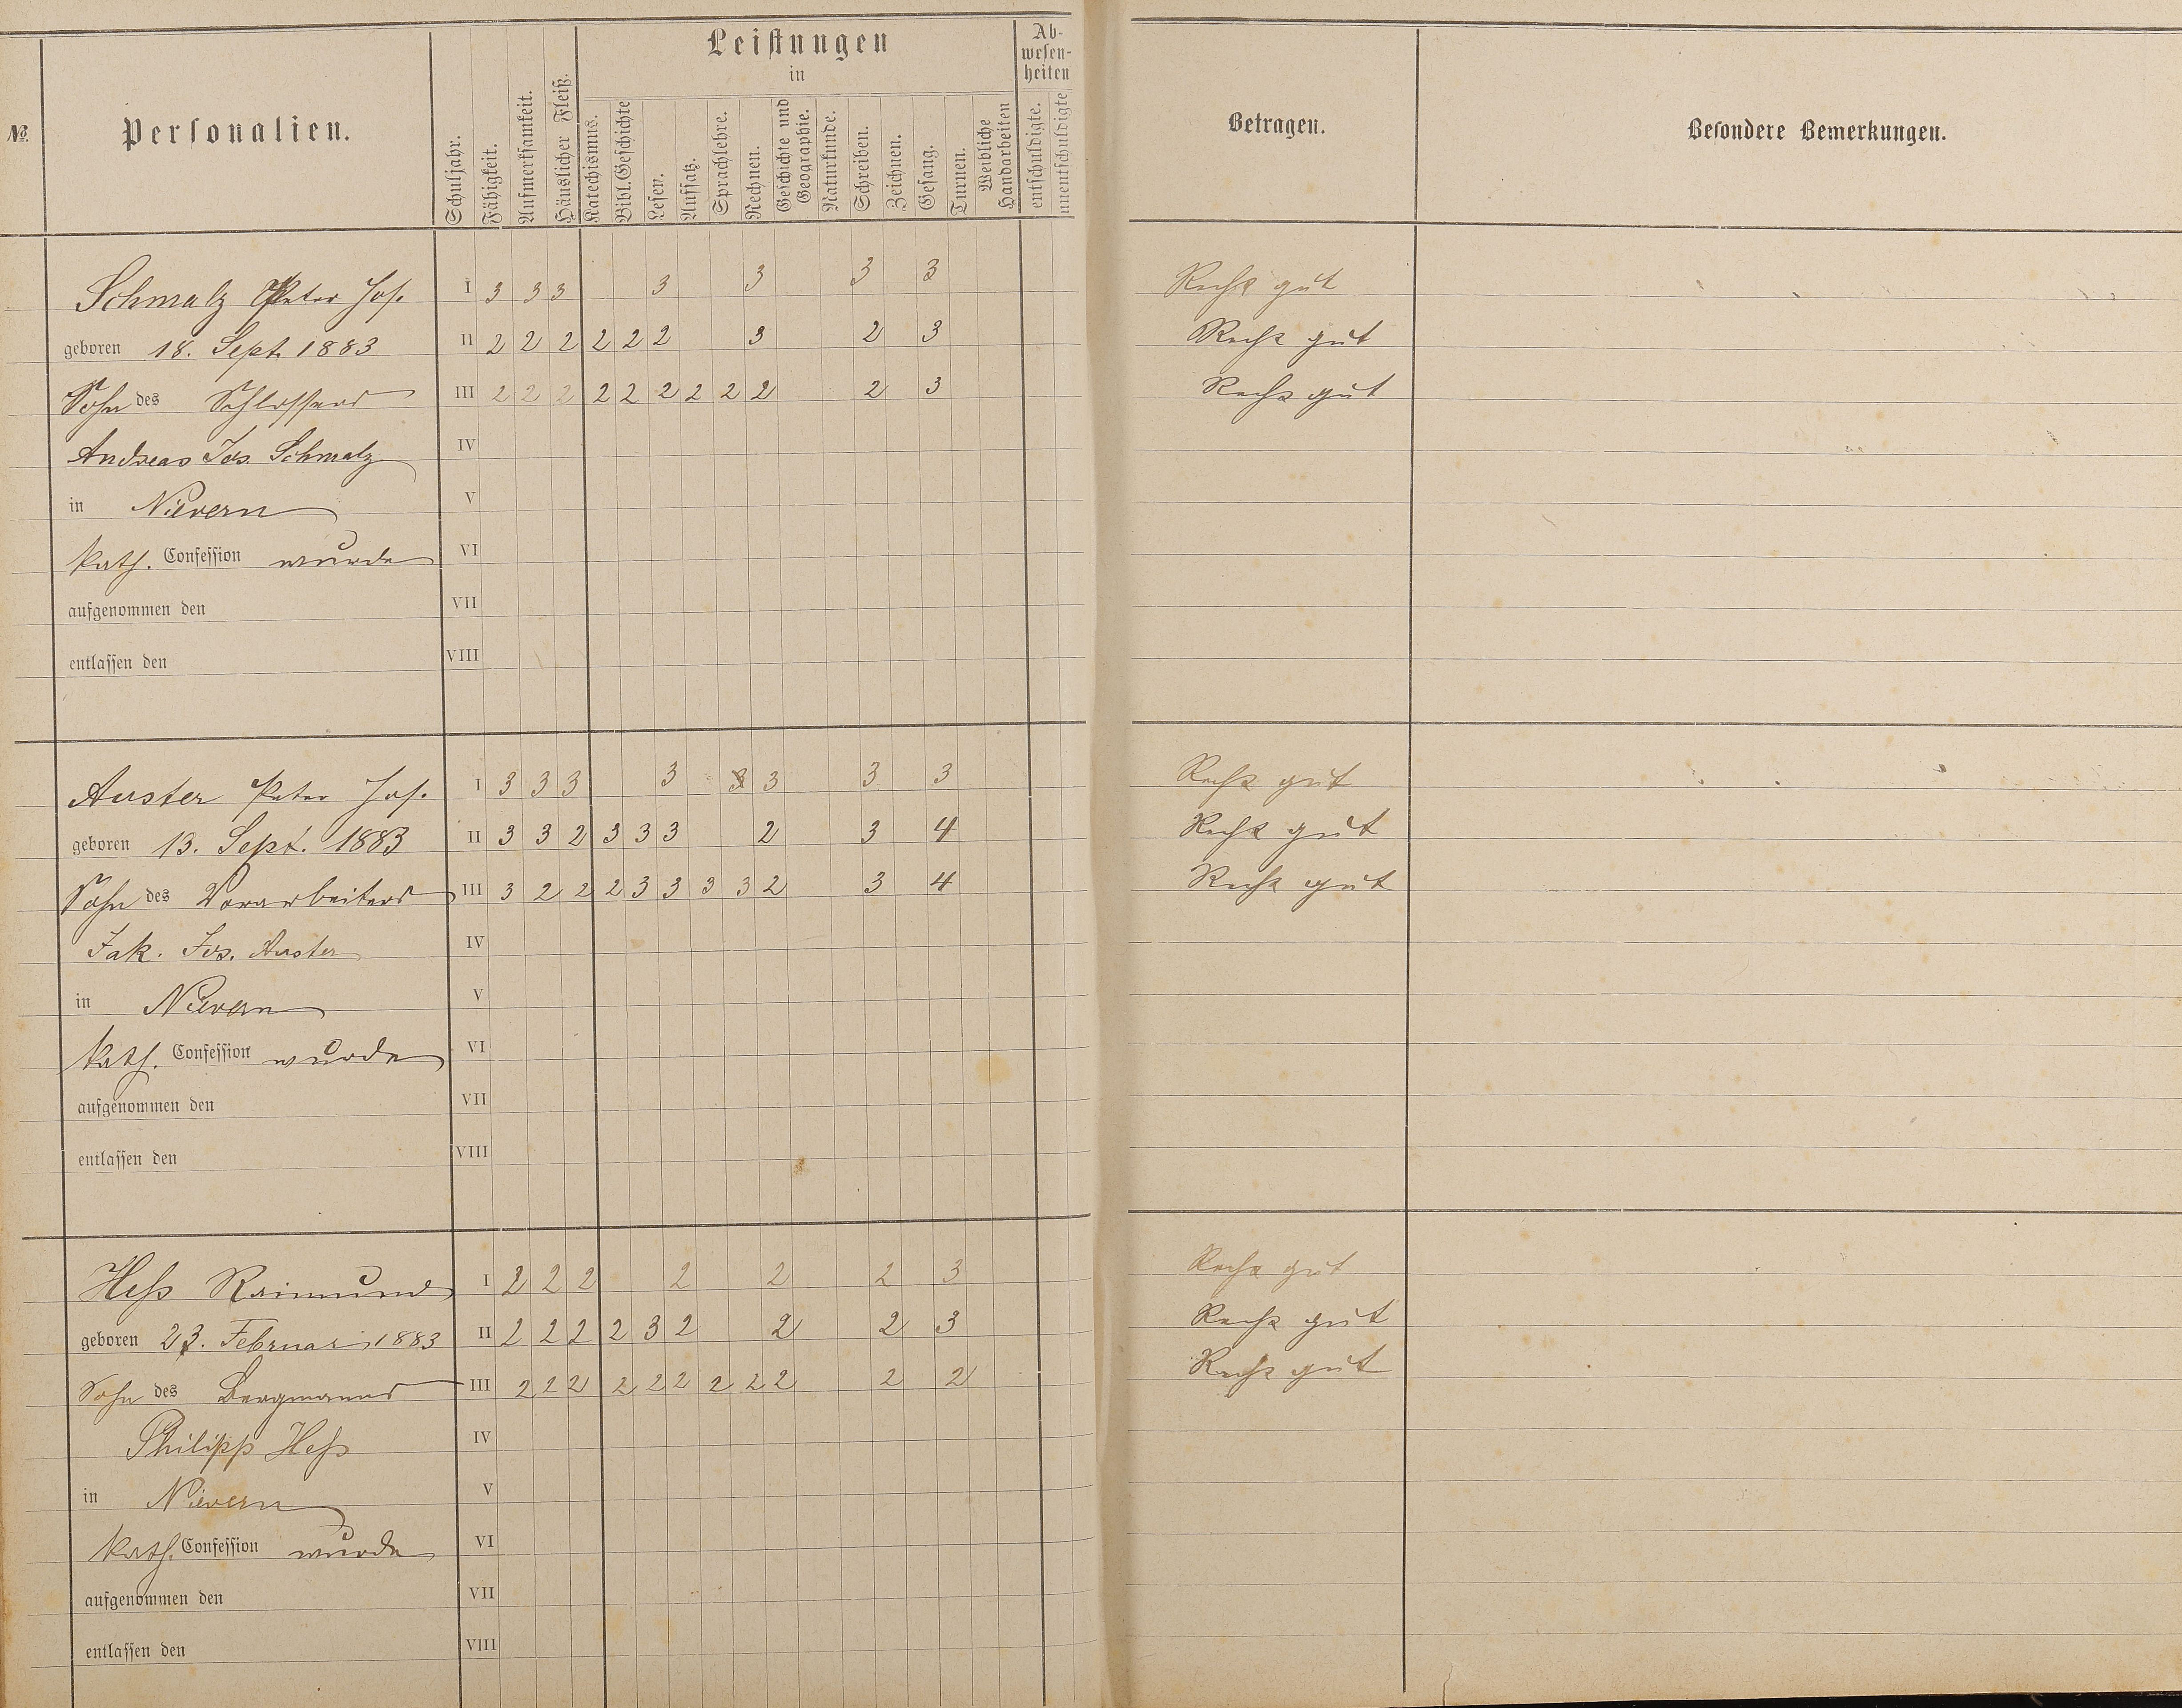 №.
Personalien.
Schuljahr.
Fähigkeit.
Aufmerksamkeit.
Häuslicher Fleiß.
Leistungen
in
Katechismus.
Bibl. Geschichte
Lesen.
Aufsatz.
Sprachlehre.
Rechnen.
Geschichte und
Geographie.
Naturkunde.
Schreiben.
Zeichnen.
Gesang.
Turnen.
Weibliche
Handarbeiten
Ab-
wesen-
heiten
entschuldigte.
unentschuldigte
Betragen.
Besondere Bemerkungen.
Schmalz Peter Jos. I 3 3 3 3 3 3 3 Recht gut
geboren 18. Sept. 1883 II 2 2 2 2 2 2 3 2 3 Recht gut
Sohn des Schlossers III 2 2 2 2 2 2 2 2 2 2 3 Recht gut
Andreas Jos. Schmalz IV
in Nievern V
kath. Confession wurde VI
aufgenommen den VII
entlassen den VIII
Auster Peter Jos. I 3 3 3 3 3 3 3 3 Recht gut
geboren 13. Sept. 1883 II 3 3 2 3 3 3 2 3 4 Recht gut
Sohn des Vorarbeiters III 3 2 2 2 3 3 3 3 2 3 4 Recht gut
Jak. Jos. Auster IV
in Nievern V
kath. Confession wurde VI
aufgenommen den VII
entlassen den VIII
Heß Raimund I 2 2 2 2 2 2 3 Recht gut
geboren 23. Februar 1883 II 2 2 2 2 3 2 2 2 3 Recht gut
Sohn des Bergmanns III 2 2 2 2 2 2 2 2 2 2 2 Recht gut
Philipp Heß IV
in Nievern V
kath. Confession wurde VI
aufgenommen den VII
entlassen den VIII